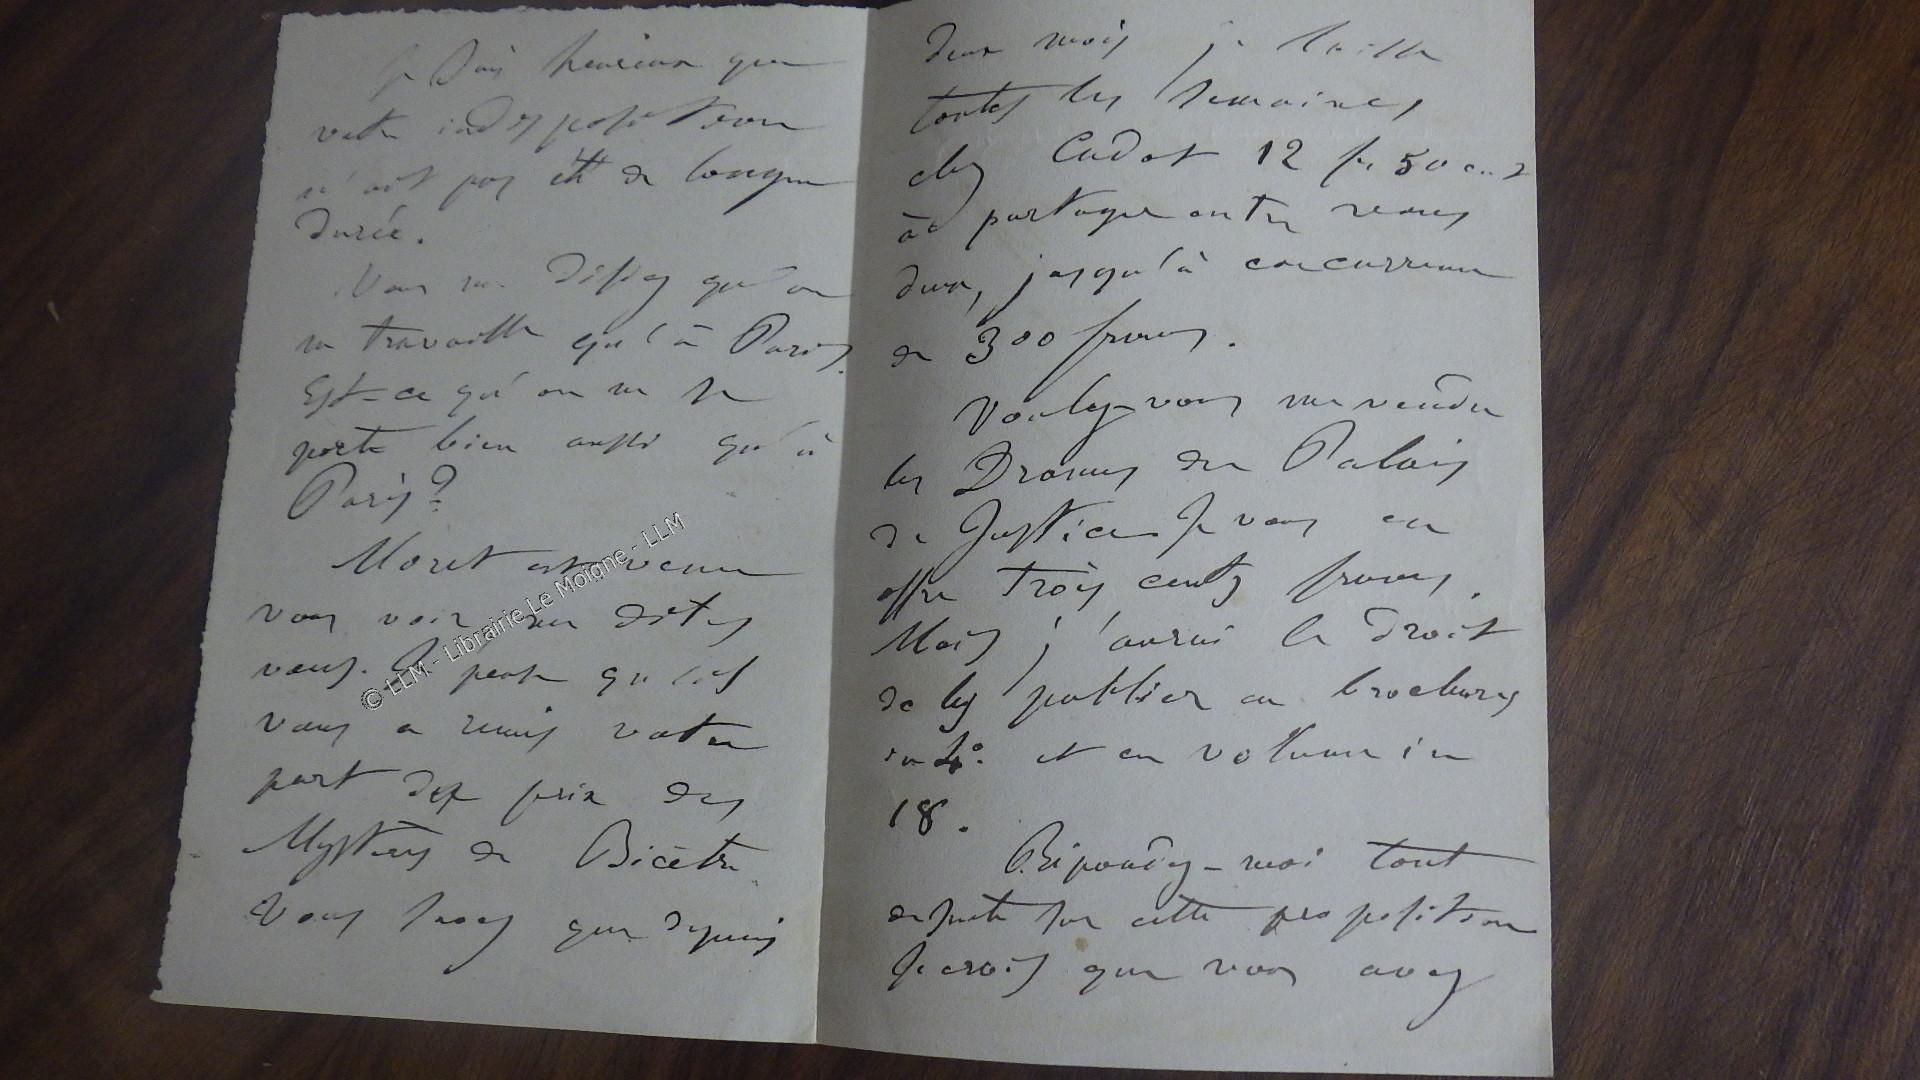 Je suis heureux que
votre indisposition
n'ait pas été de longue
durée.
Vous me disiez qu'on
ne travaille qu'à Paris.
Est-ce qu'on ne se
porte bien aussi qu'à
Paris?
Moret est venu
vous voir me dites
vous. Je pense qu'il
vous a remis votre
part du prix des
Mystères de Bicêtre
Vous savez que depuis
deux mois je laisse
toutes les semaines
chez Cadot 12 fr 50 c
à partager entre vous
deux, jusqu'à concurrence
de 300 francs.
Voulez-vous me vendre
les Drames du Palais
de Justice Je vous en
offre trois cents francs.
Mais j'aurai le droit
de les publier en brochures
in 4° et en volume in
18.
Répondez-moi tout
de suite sur cette proposition
Je crois que vous avez
© LLM - Librairie Le Moigne - LLM